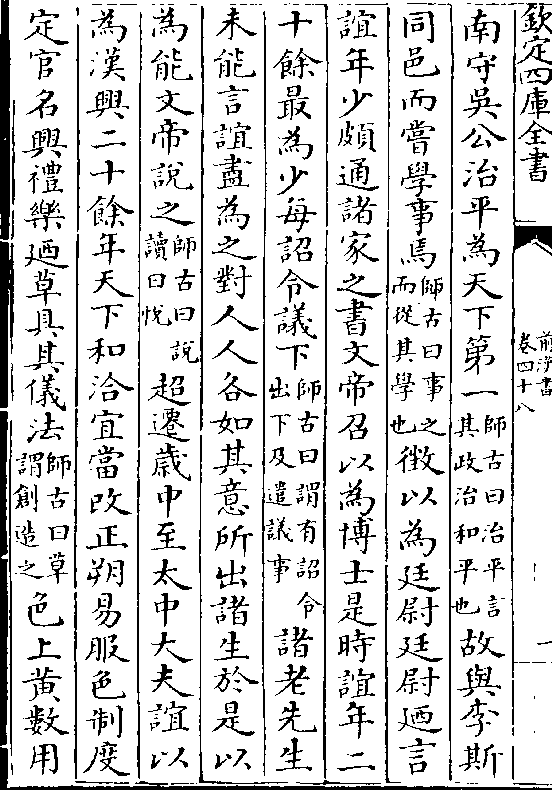 欽定四庫全書
前漢書
卷四十八
一
南守吳公治平為天下第一師古曰治平言其政治和平也故與李斯
同邑而嘗學事焉師古曰事之而從其學也徵以為廷尉廷尉廼言
誼年少頗通諸家之書文帝召以為博士是時誼年二
十餘最為少每詔令議下師古曰謂有詔令出下及遣議事諸老先生
未能言誼盡為之對人人各如其意所出諸生於是以
為能文帝說之師古曰說讀曰悅超遷歲中至太中大夫誼以
為漢興二十餘年天下和洽宜當改正朔易服色制度
定官名興禮樂廼草具其儀法師古曰草謂創造之色上黃數用